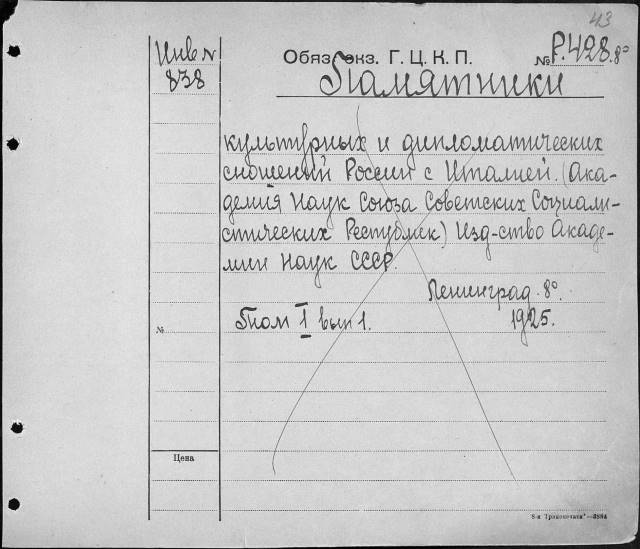 43
Инв N
838
Обяз. экз. Г. Ц. К. П.
№ Р.428.8°
Памятники
культурных и дипломатических
сношений России с Италией. (Ака-
демия Наук Союза Советских Социали-
стических Республик) Изд-ство Акаде-
мии Наук СССР.
Ленинград. 8°.
Том I вып 1.
1925.
№
Цена